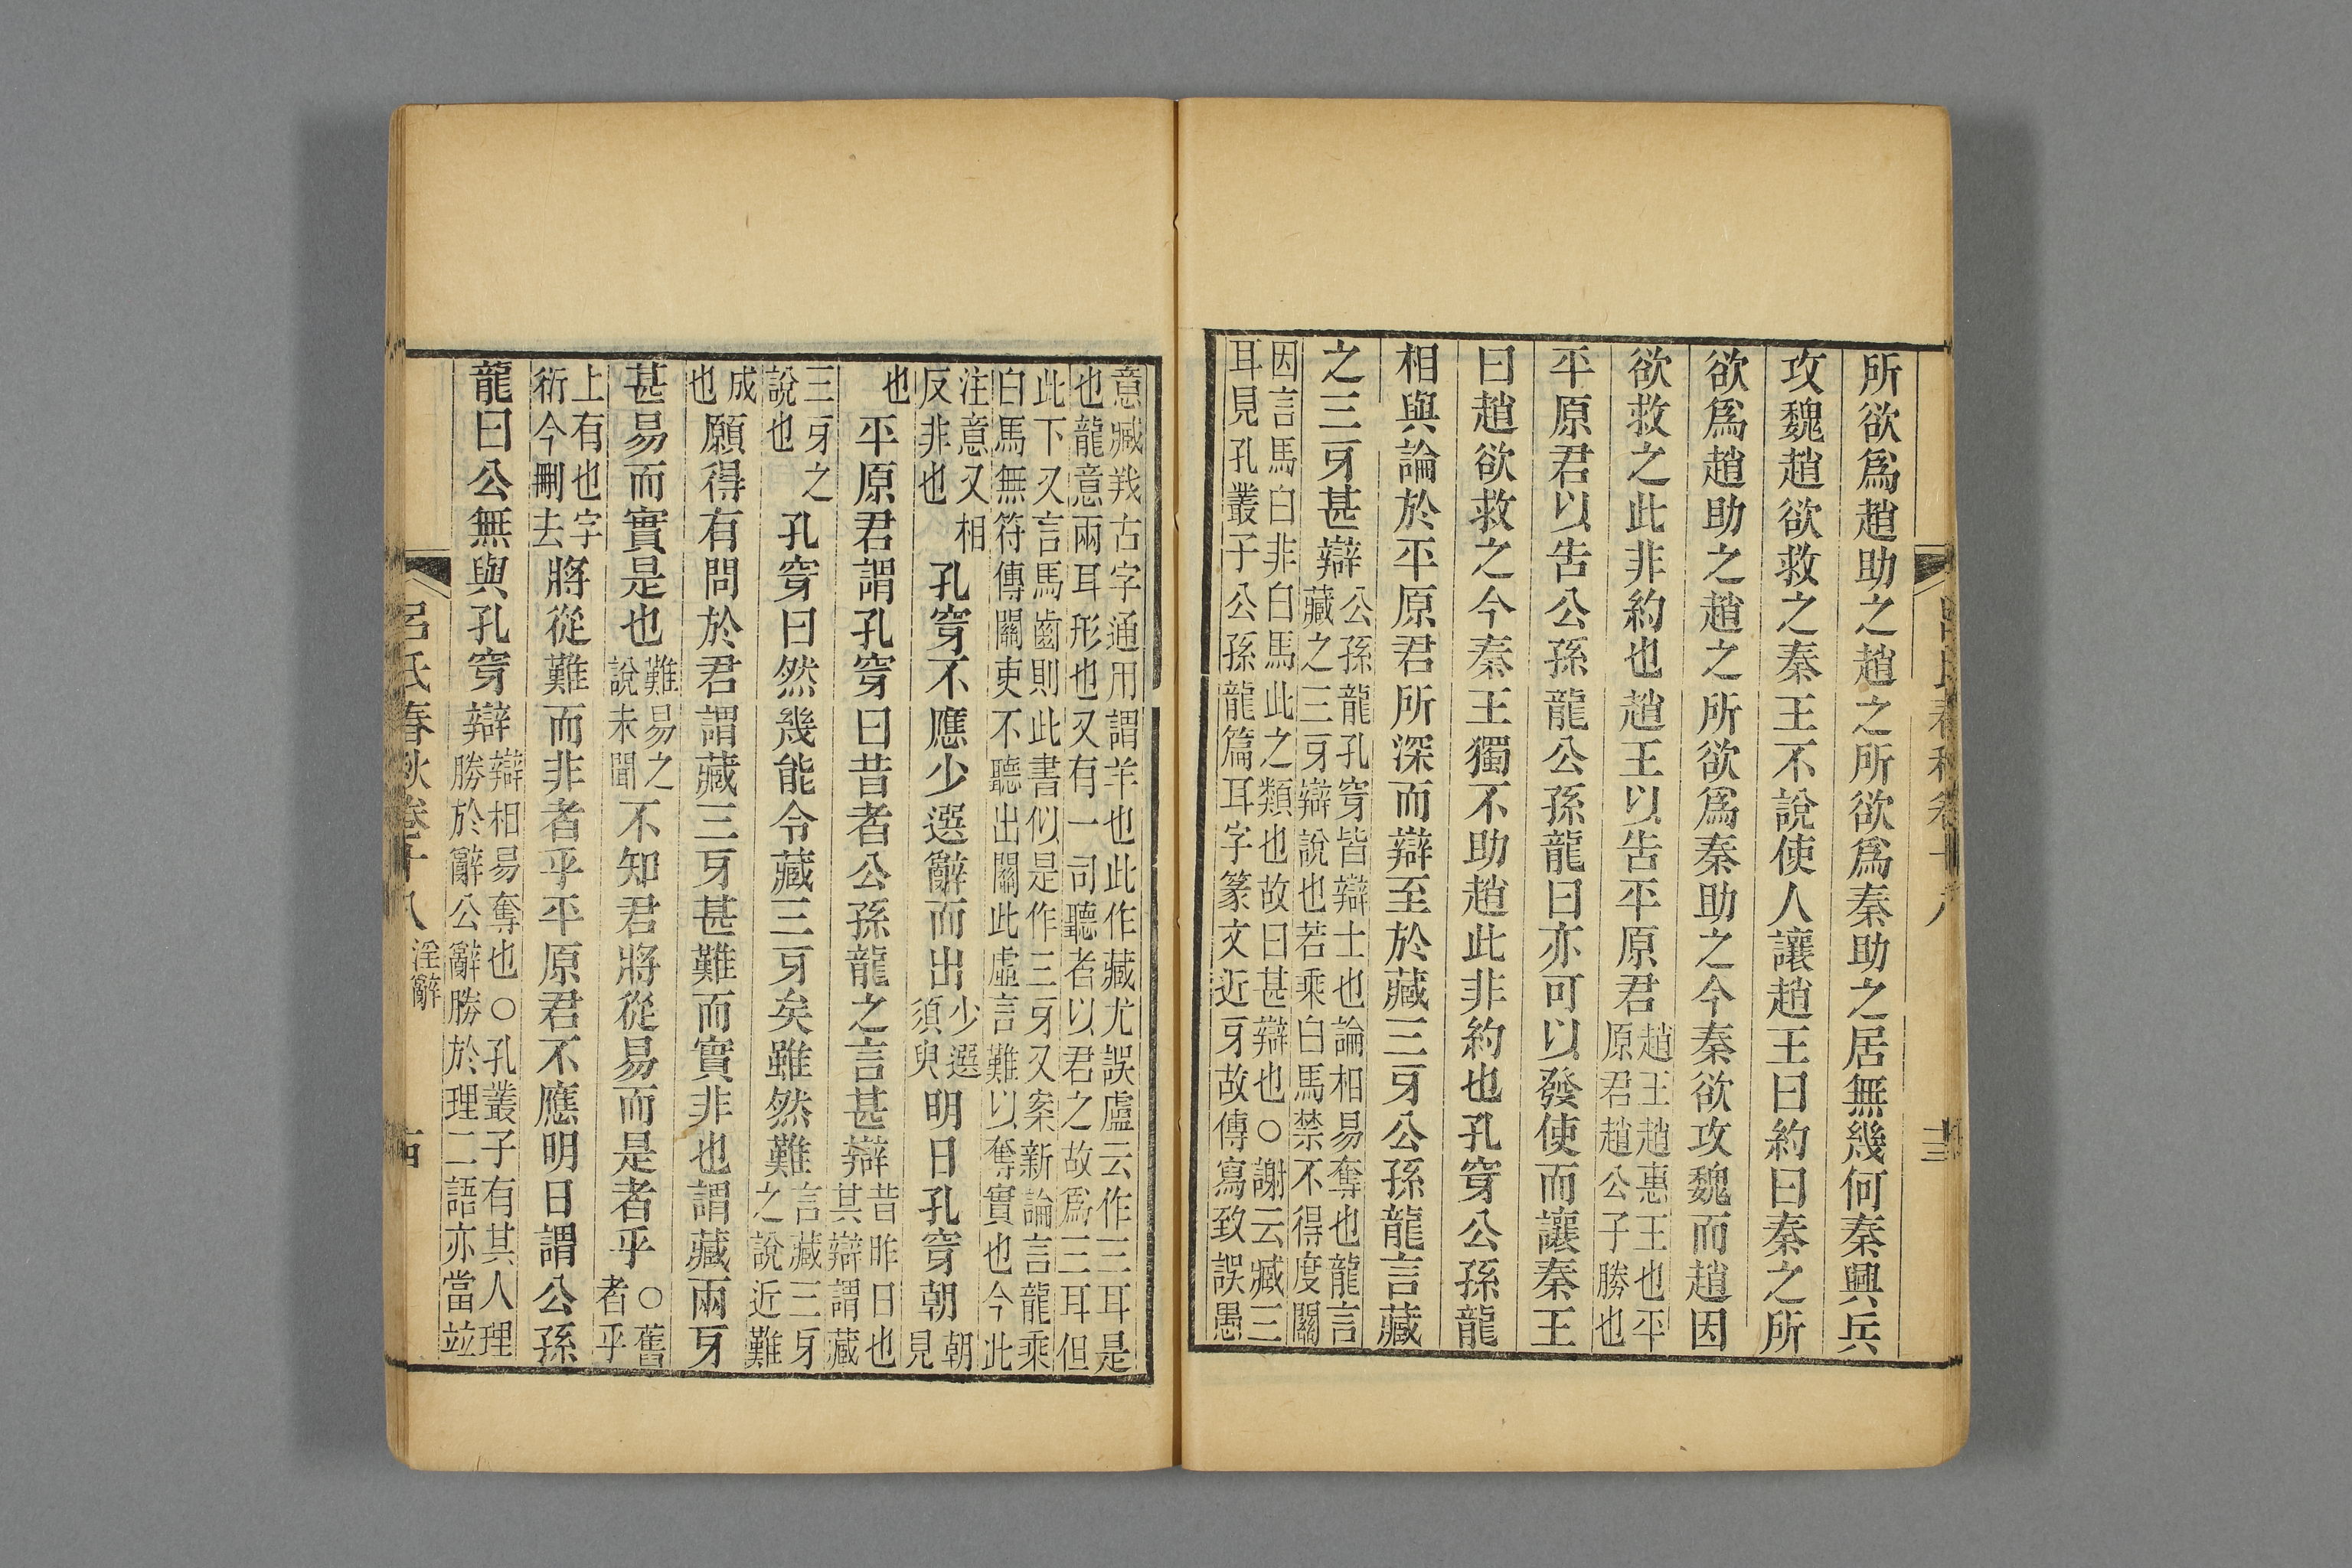 所欲爲趙助之趙之所欲爲秦助之居無幾何秦興兵
攻魏趙欲救之秦王不說使人讓趙王曰約曰秦之所
欲爲趙助之趙之所欲爲秦助之今秦欲攻魏而趙因
欲救之此非約也趙王以告平原君趙王趙惠王也平原君趙公子勝也
平原君以告公孫龍公孫龍曰亦可以發使而讓秦王
曰趙欲救之今秦王獨不助趙此非約也孔穿公孫龍
相與論於平原君所深而辯至於藏三牙公孫龍言藏
之三牙甚辯公孫龍孔穿皆辯士也論相易奪也龍言藏之三牙辯說也若乘白馬禁不得度關
因言馬白非白馬此之類也故曰甚辯也○謝云臧三
耳見孔叢子公孫龍篇耳字篆文近牙故傳寫致誤愚
意臧羘古字通用謂羊也此作藏尤誤盧云作三耳是
也龍意兩耳形也又有一司聽者以君之故爲三耳但
此下又言馬齒則此書似是作三牙又案新論言龍乘
白馬無符傳關吏不聽出關此虛言難以奪實也今此
注意又相反非也孔穿不應少選辭而出少選須臾明日孔穿朝朝見
也平原君謂孔穿曰昔者公孫龍之言甚辯昔昨日也其辯謂藏
三牙之說也孔穿曰然幾能令藏三牙矣雖然難言藏三牙之說近難
成也願得有問於君謂藏三牙甚難而實非也謂藏兩牙
甚易而實是也難易之說未聞不知君將從易而是者乎○舊者乎
上有也字衍今刪去將從難而非者乎平原君不應明日謂公孫
龍曰公無與孔穿辯辯相易奪也○孔叢子有其人理勝於辭公辭勝於理二語亦當竝
呂氏春秋卷十八
淫辭